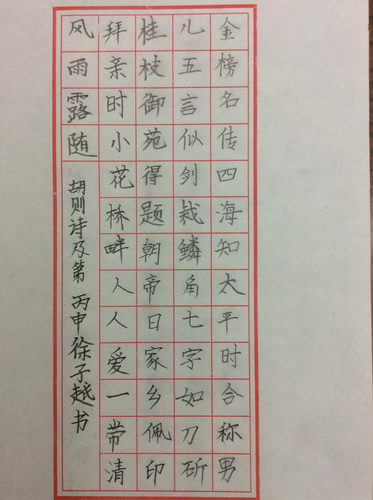 金榜名传四海知太平时合称男
儿五言似剑裁鳞角七字如刀斫
桂枝御苑得题朝帝日家乡佩印
拜亲时小花桥畔人人爱一带清
风雨露随
胡则诗及第 丙申徐子越书